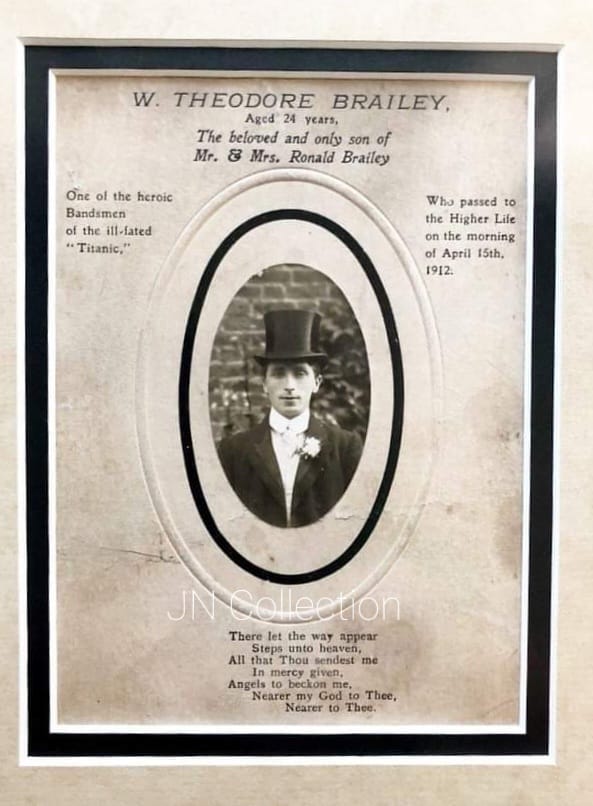 W. THEODORE BRAILEY,
Aged 24 years,
The beloved and only son of
Mr. & Mrs. Ronald Brailey
One of the heroic
Bandsmen
of the ill-fated
"Titanic,"
Who passed to
the Higher Life
on the morning
of April 15th,
1912.
JN Collection
There let the way appear
Steps unto heaven,
All that Thou sendest me
In mercy given,
Angels to beckon me,
Nearer my God to Thee,
Nearer to Thee.